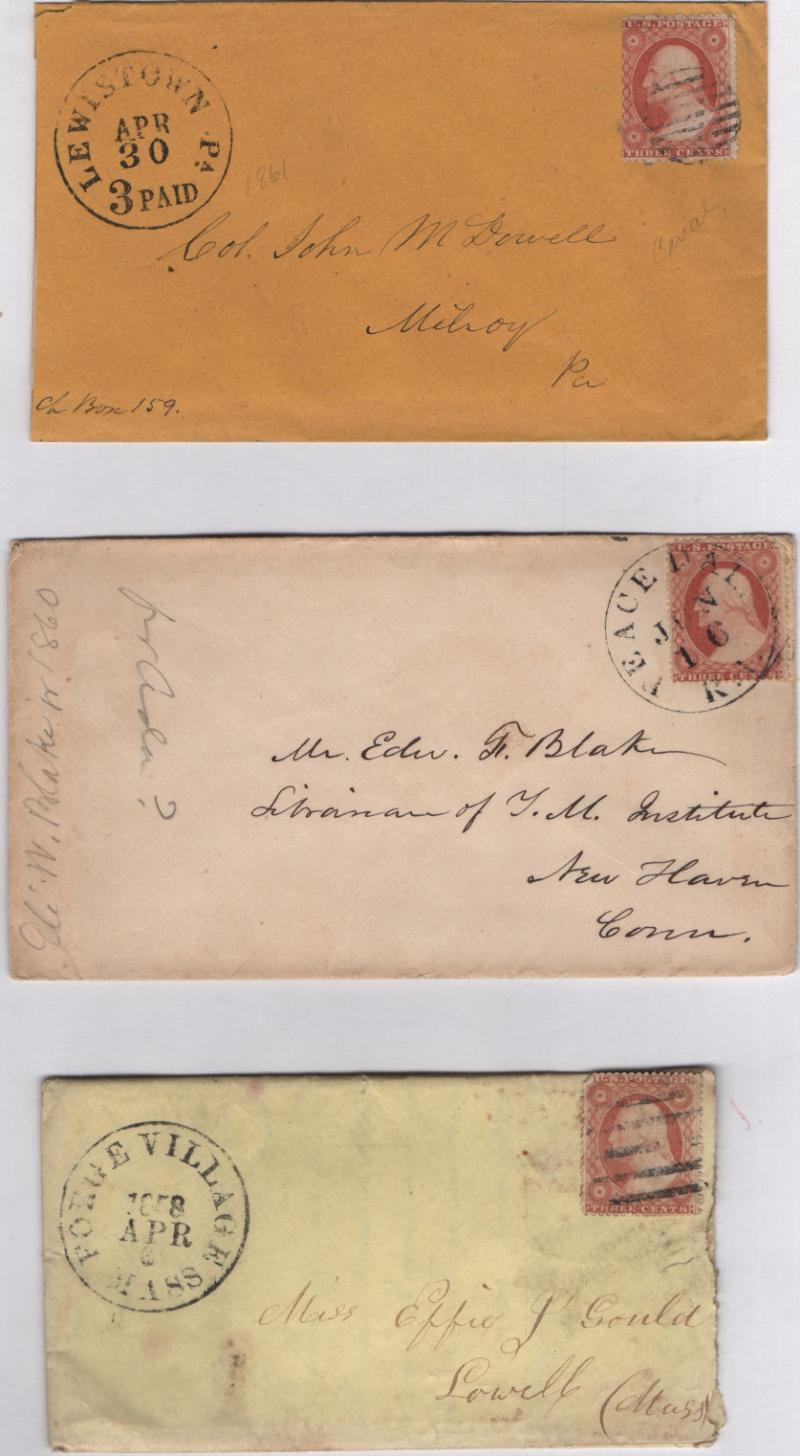 U.S. POSTAGE
THREE CENTS
LEWISTOWN PA
APR
30
3 PAID
1861
Canal
Col. John McDowell
Milroy
Pa
Box 159.
U.S. POSTAGE
THREE CENTS
PEACE DALE
JAN
16
R.I.
Eli W. Blake Jr 1860
for
?
Mr. Edw. F. Blake
Librarian of Y. M. Institute
New Haven
Conn.
U.S. POSTAGE
THREE CENTS
FORGE VILLAGE
1858
APR
6
MASS
Miss Effie J Gould
Lowell (Mass)